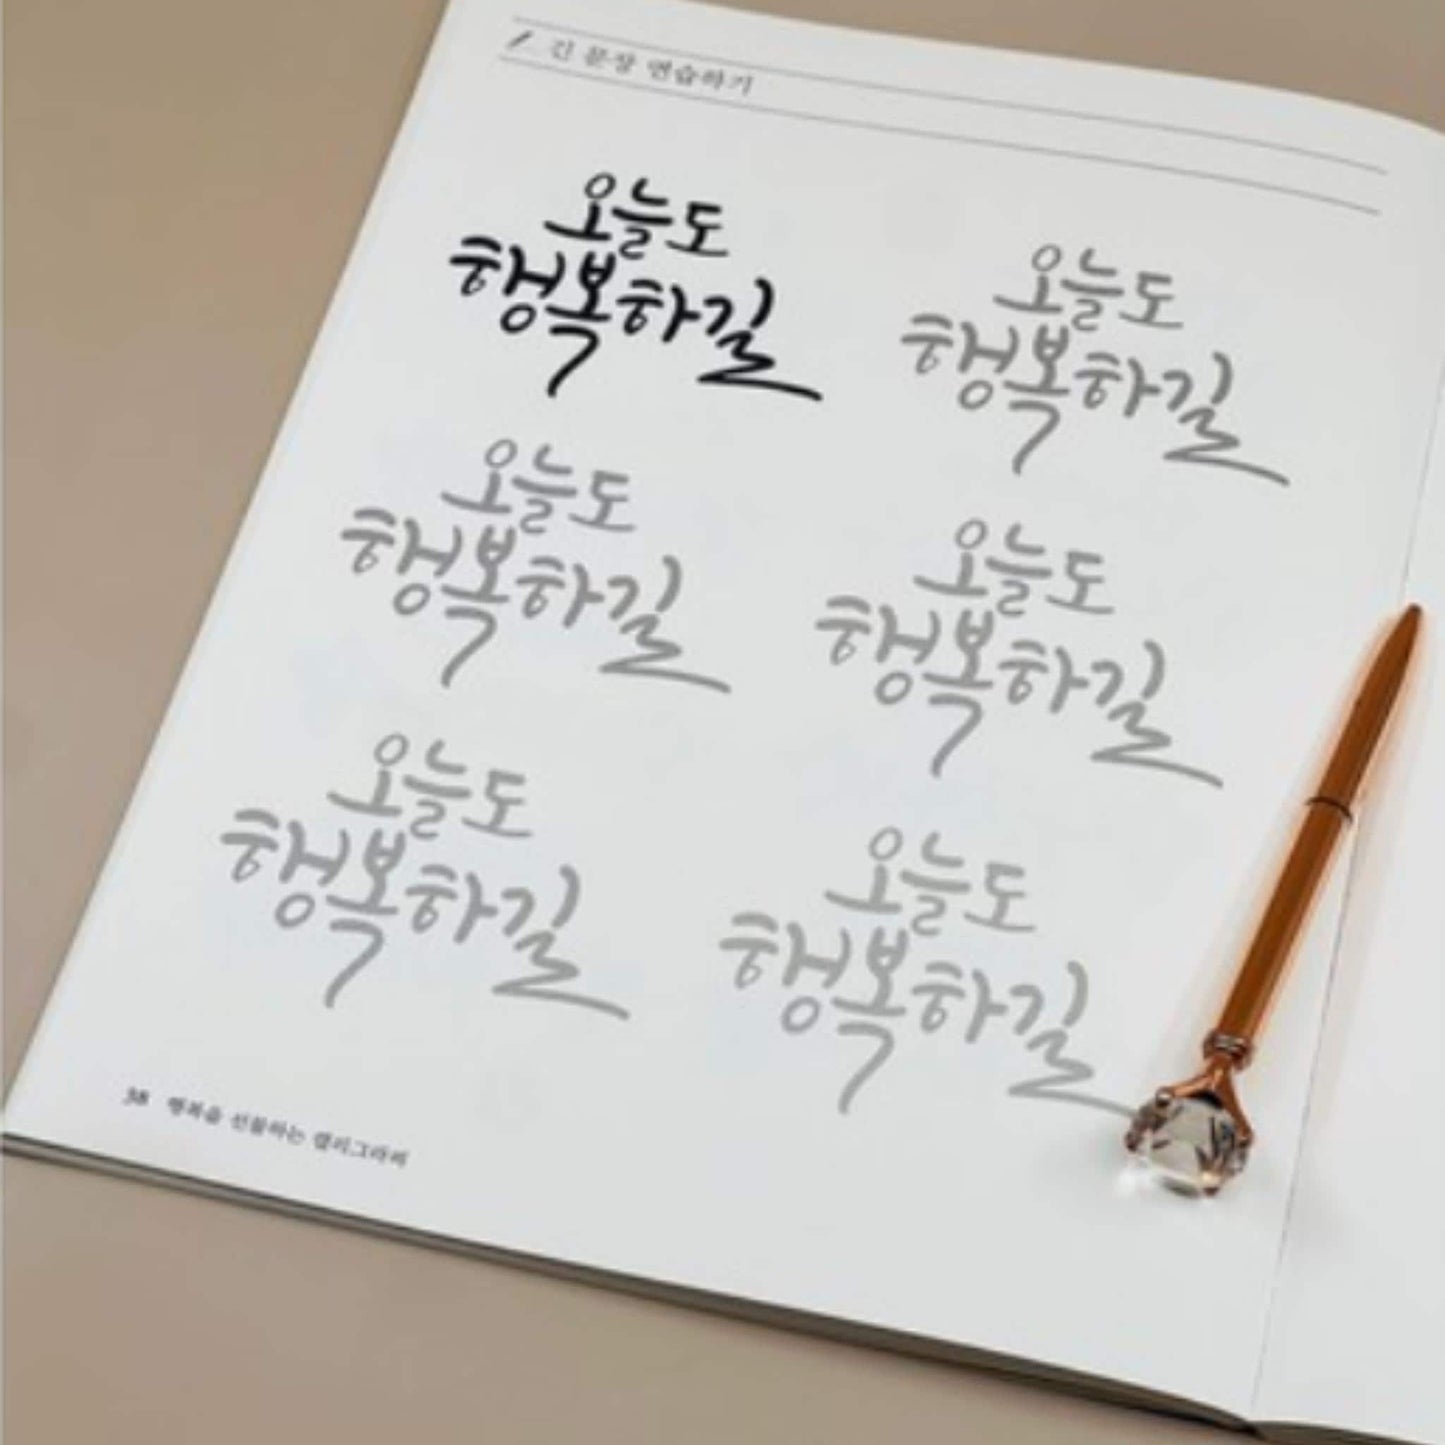 긴 문장 연습하기
오늘도
행복하길
오늘도
행복하길
오늘도
행복하길
오늘도
행복하길
오늘도
행복하길
오늘도
행복하길
38 행복을 선물하는 캘리그라피